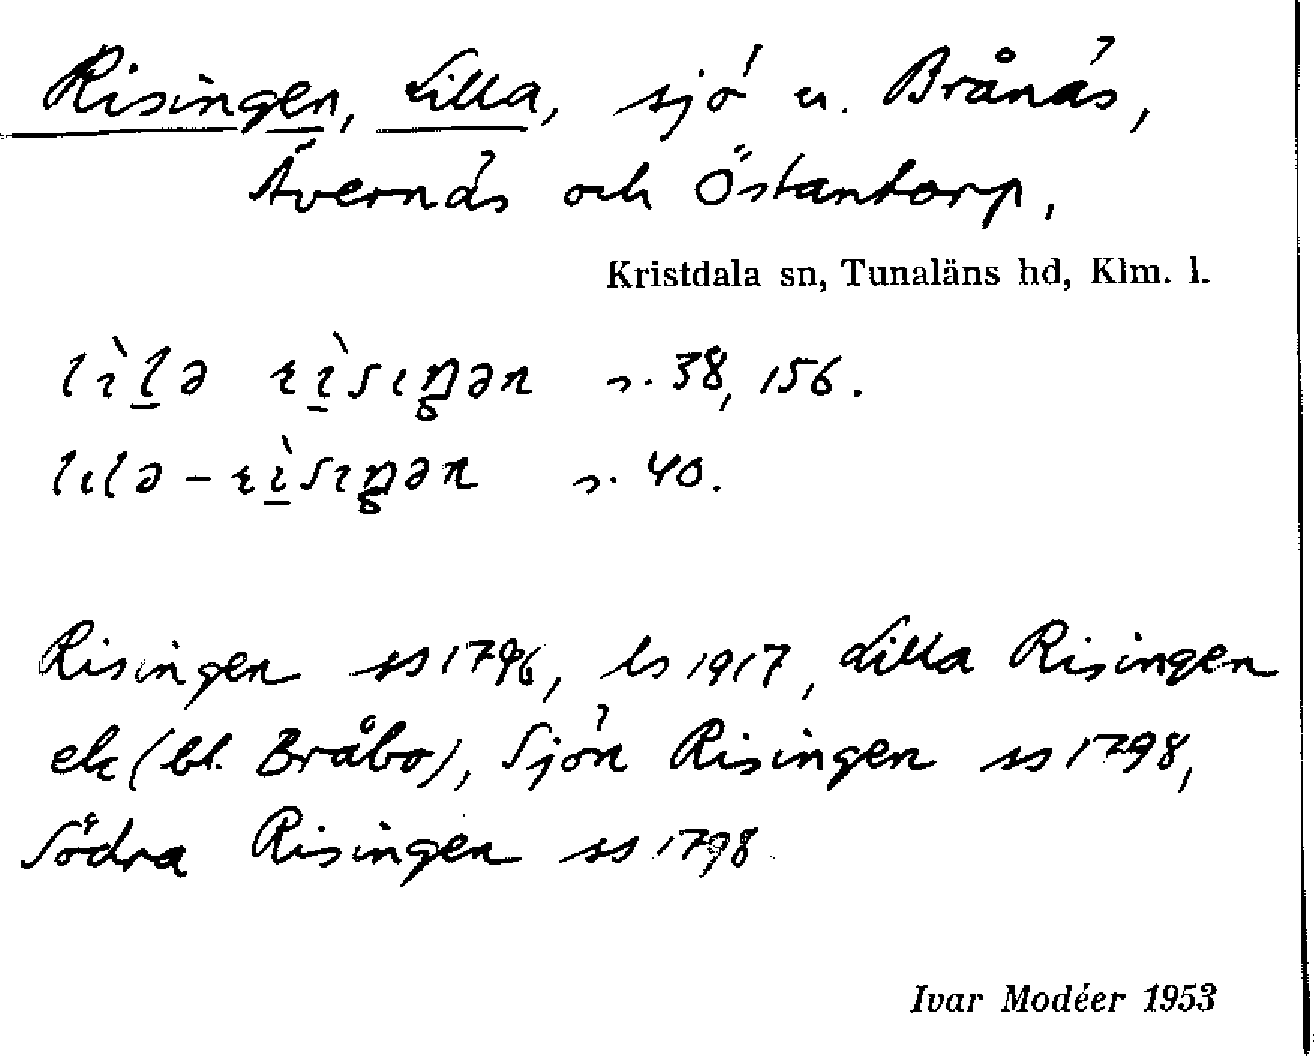 Risingen, Lilla, sjö u. Brånäs,
Ävernäs och Östantorp,
Kristdala sn, Tunaläns hd, Klm. l.
s. 38, 156.
s. 40.
Risingen ss 1796, ls 1917, Lilla Risingen
ek (bl. Bråbo), Sjön Risingen ss 1798,
Södra Risingen ss 1798
Ivar Modéer 1953